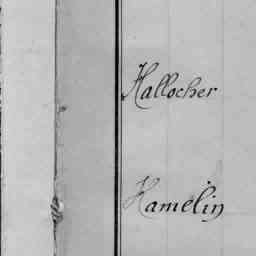 Hallocher
Hamelin